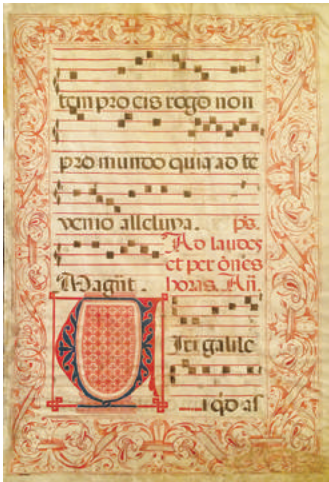 tem pro eis rogo non
pro mundo quia ad te
venio alleluya. ps.
Ad laudes
et per on̄es
Magn̄t. horas. An̄.
Viri galile
i qd̄ as